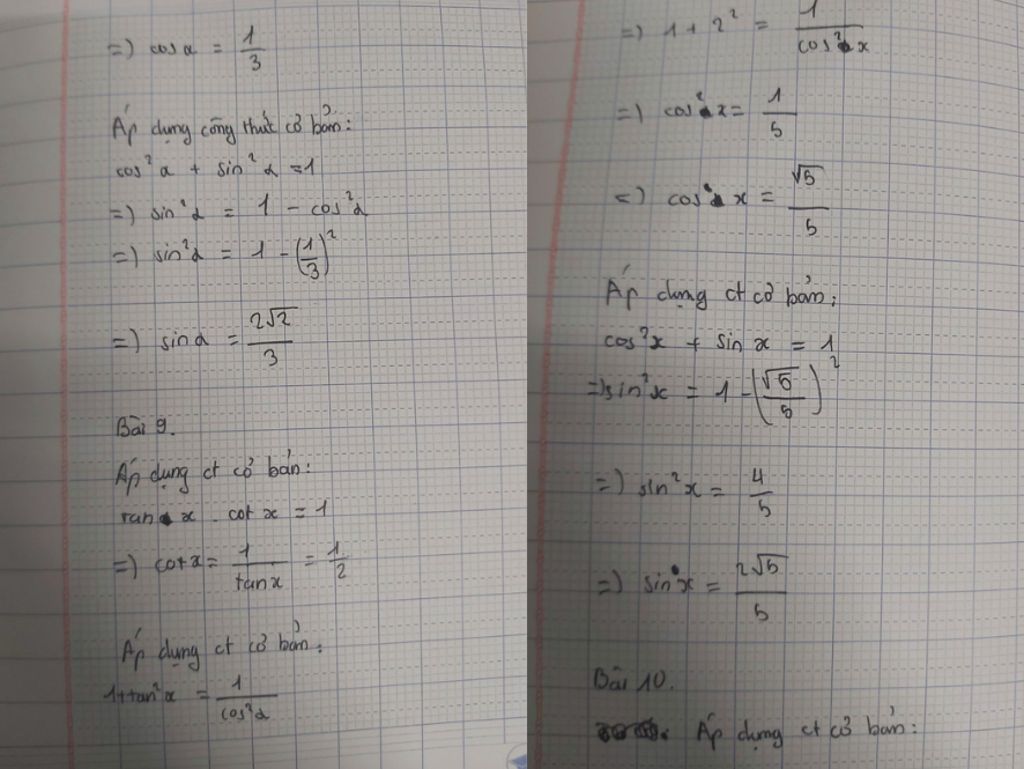 =) cos α = 1/3
Áp dụng công thức cơ bản:
cos² α + sin² α = 1
=) sin² α = 1 - cos² α
=) sin² α = 1 - (1/3)²
=) sin α = 2√2/3
Bài 9.
Áp dụng ct cơ bản:
tan x . cot x = 1
=) cot x = 1/tan x = 1/2
Áp dụng ct cơ bản:
1+tan² x = 1/cos² α
=) 1 + 2² = 1/cos² x
=) cos² x = 1/5
=) cos x = √5/5
Áp dụng ct cơ bản:
cos² x + sin x = 1
=) sin² x = 1 - (√5/5)²
=) sin² x = 4/5
=) sin x = 2√5/5
Bài 10.
Áp dụng ct cơ bản: